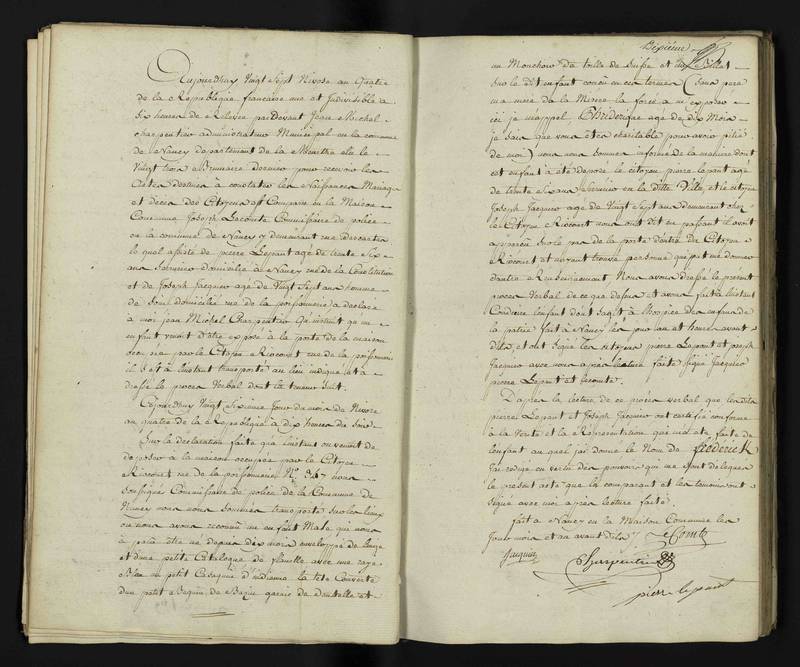 Aujourdhuy Vingt Sept Nivose an Quatre
de la Republique francaise une et Indivisible a
Six heures de Relevée pardevant Jean Michel
charpentier administrateur Municipal en la commune
de Nancy departement de la Meurthe elu le
Vingt trois Brumaire dernier pour recevoir les
Actes destinés a constater les Naissances Mariages
et deces des Citoyens est Comparu en la Maison
Commune Joseph Lecomte Commissaire de police
en la commune de Nancy y demeurant rue
lequel assisté de pierre Lepant agé de trente Six
ans domicilié a Nancy rue de la Constitution
et de Joseph Jacquier age de Vingt Sept ans homme
de domicilié rue de la poissonnerie a declaré
a moi Jean Michel Charpentier Qu'instruit qu'un
enfant venoit d'être exposé à la porte de la maison
occupée par le Citoyen Riocourt rue de la poissonnerie
il s'est a linstant transporté au lieu indiqué et a
dressé le proces Verbal dont la teneur Suit.
Cejourdhuy Vingt Sixieme Jour du mois de Nivose
an quatre de la Republique a dix heures du Soir
Sur la declaration faite qu'a linstant on venoit de
deposer a la maison occupée par le Citoyen
Riocourt rue de la poissonnerie N°. 347 nous
Soussigné Commissaire de police de la Commune de
Nancy nous nous Sommes transporté Sur les lieux
ou nous avons reconnu un enfant Male qui nous
a paru être ne depuis dix mois enveloppé de linge
et d'une petite Catalogne de flanelle avec une raye
Bleu un petit Casaquin d'indienne la tête Couverte
d'un petit Beguin de Bazin garnie de dantelle et
Sixieme
un Mouchoir de toille de Suisse et un Billet
Sur le dit enfant concu en ces termes (Sans pere
ma mere da la Misere la forcé a m'exposer
ici je m'appel fridorique age de dix Mois
je sais que vous êtes charitable pour avoir pitié
de moi) nous nous Sommes informé de la maniere dont
cet enfant a été deposé le citoyen pierre Lepant agé
de trente Six ans en la ditte Ville, et le citoyen
Joseph Jacquier age de Vingt Sept ans demeurant chez
le Citoyen Riocourt nous ont dit en passant il avoit
apperçu sur le pas de la porte d'entré du Citoyen
Riocourt et n'ayant trouvé personne qui put me donner
d'autre Renseignement, Nous avons dressé le present
proces Verbal de ce que dessus et avons fait a linstant
Conduire lenfant dont S'agit a lhospice des enfans de
la patrie fait a Nancy les jour an et heures avant
dits, et ont Signé les citoyens pierre Lepant et joseph
Jacquier avec nous après lecture faitte Signé Jacquier
pierre Lepant et Lecomte.
D'apres la lecture de ce proces verbal que les dits
pierre Lepant et Joseph Jacquier ont certifié conforme
à la Verité et la Representation qui m'a ete faite de
lenfant au quel jai donné le Nom de frederick
Jai redigé en vertu des pouvoirs qui me Sont delegués
le present acte que le comparant et les temoins ont
Signé avec moi après lecture faite
fait a Nancy en la Maison Commune les
Jour mois et an avant dits /. LeComte
Jacquier
Charpentier
pierre lepant